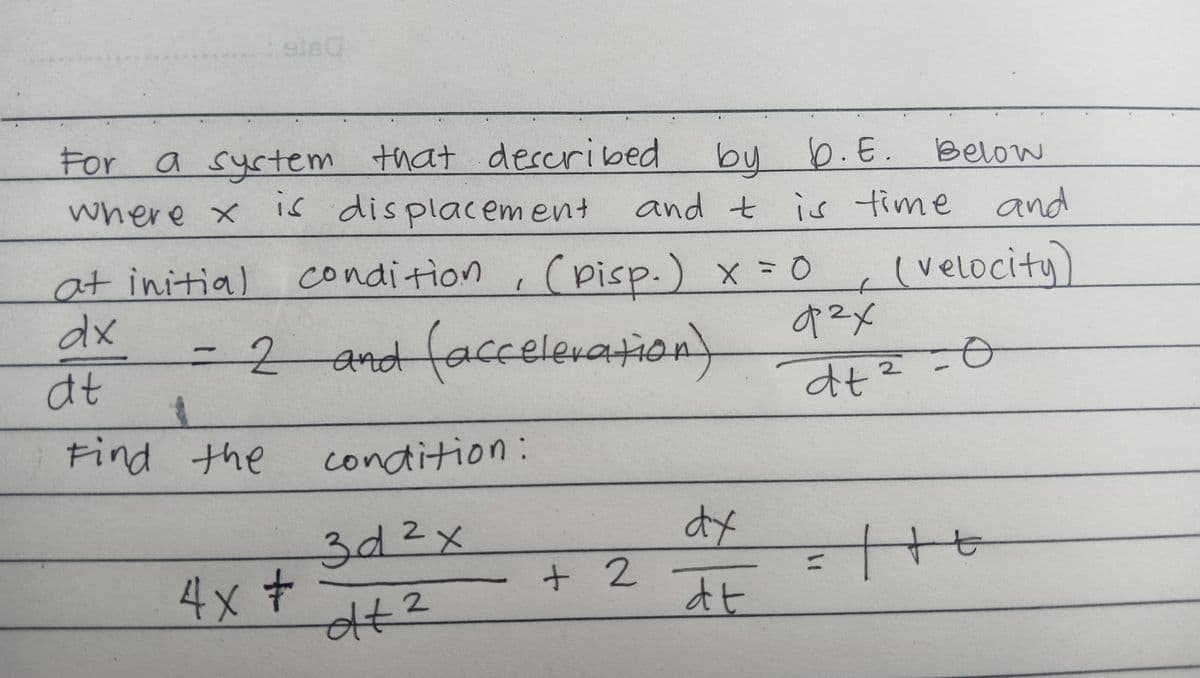 For a system that described by D.E. Below
where x is displacement and t is time and
at initial condition, (Disp.) x = 0, (velocity)
dx/dt = 2 and (acceleration) d²x/dt² = 0
Find the condition:
4x + 3d²x/dt² + 2 dx/dt = 1 + t